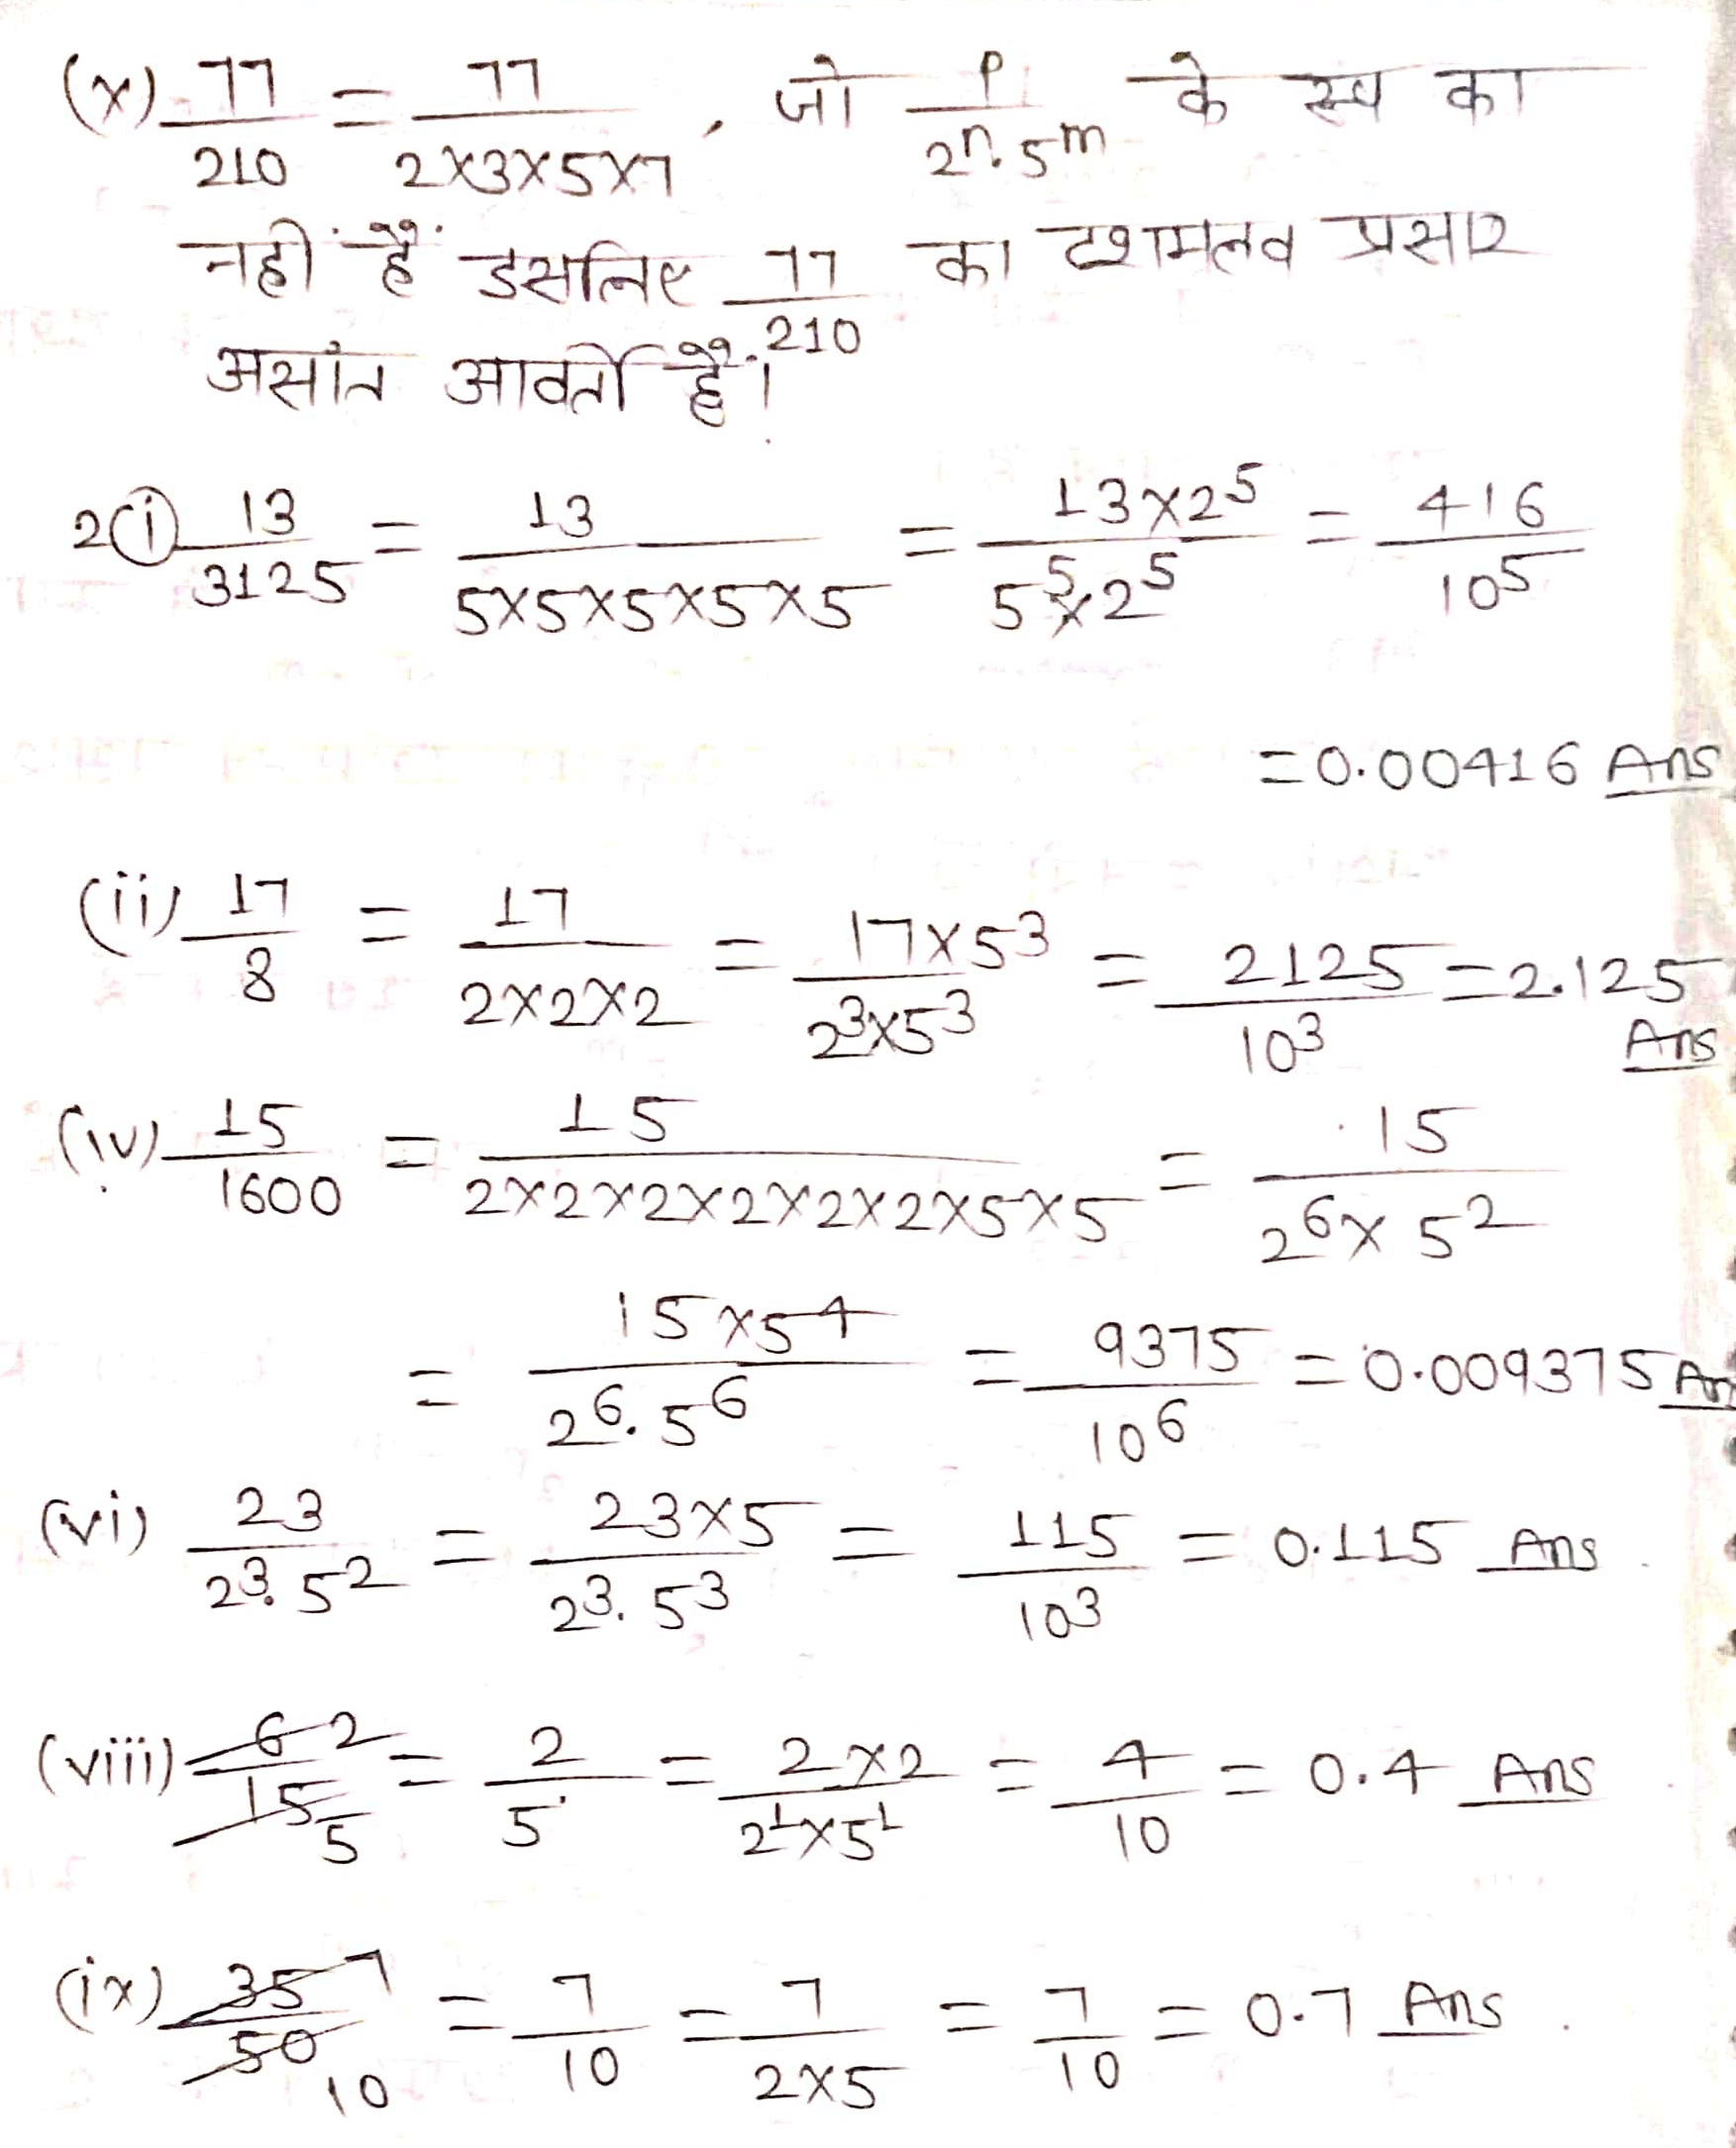 (x) 77/210 = 77/2×3×5×7, जो P/2ⁿ.5ᵐ के रूप का
नहीं हैं इसलिए 77/210 का दशमलव प्रसार
असांत आवर्ती हैं।
2(i) 13/3125 = 13/5×5×5×5×5 = 13×2⁵/5⁵×2⁵ = 416/10⁵
=0.00416 Ans
(ii) 17/8 = 17/2×2×2 = 17×5³/2³×5³ = 2125/10³ =2.125 Ans
(iv) 15/1600 = 15/2×2×2×2×2×2×5×5 = 15/2⁶×5²
= 15×5⁴/2⁶.5⁶ = 9375/10⁶ = 0.009375 Ans
(vi) 23/2³.5² = 23×5/2³.5³ = 115/10³ = 0.115 Ans
(viii) 6 2/15 5 = 2/5 = 2×2/2¹×5¹ = 4/10 = 0.4 Ans
(ix) 35 7/50 10 = 7/10 = 7/2×5 = 7/10 = 0.7 Ans